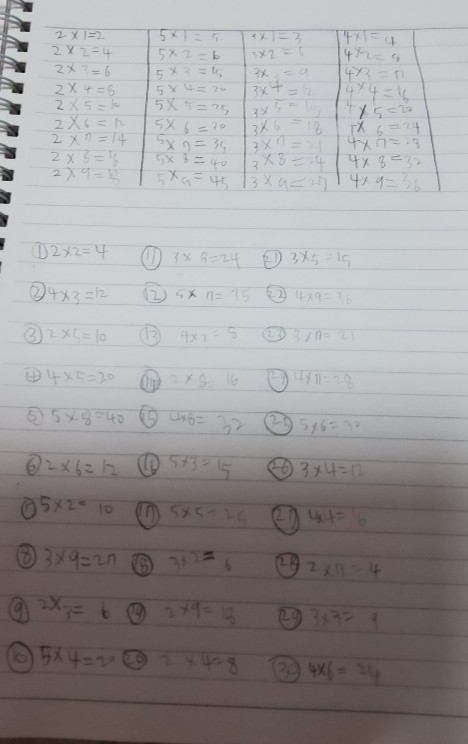 2×1=2 5×1=5 3×1=3 4×1=4
2×2=4 5×2=10 3×2=6 4×2=8
2×3=6 5×3=15 3×3=9 4×3=12
2×4=8 5×4=20 3×4=12 4×4=16
2×5=10 5×5=25 3×5=15 4×5=20
2×6=12 5×6=30 3×6=18 4×6=24
2×7=14 5×7=35 3×7=21 4×7=28
2×8=16 5×8=40 3×8=24 4×8=32
2×9=18 5×9=45 3×9=27 4×9=36
① 2×2=4 ⑪ 3×8=24 ㉑ 3×5=15
② 4×3=12 ⑫ 5×7=35 ㉒ 4×9=36
③ 2×5=10 ⑬ 4×2=8 ㉓ 3×7=21
④ 4×5=20 ⑭ 2×8=16 ㉔ 4×7=28
⑤ 5×8=40 ⑮ 4×8=32 ㉕ 5×6=30
⑥ 2×6=12 ⑯ 5×3=15 ㉖ 3×4=12
⑦ 5×2=10 ⑰ 5×5=25 ㉗ 4×4=16
⑧ 3×9=27 ⑱ 3×2=6 ㉘ 2×7=4
⑨ 2×3=6 ⑲ 2×9=18 ㉙ 3×3=9
⑩ 5×4=20 ⑳ 2×4=8 ㉚ 4×6=24